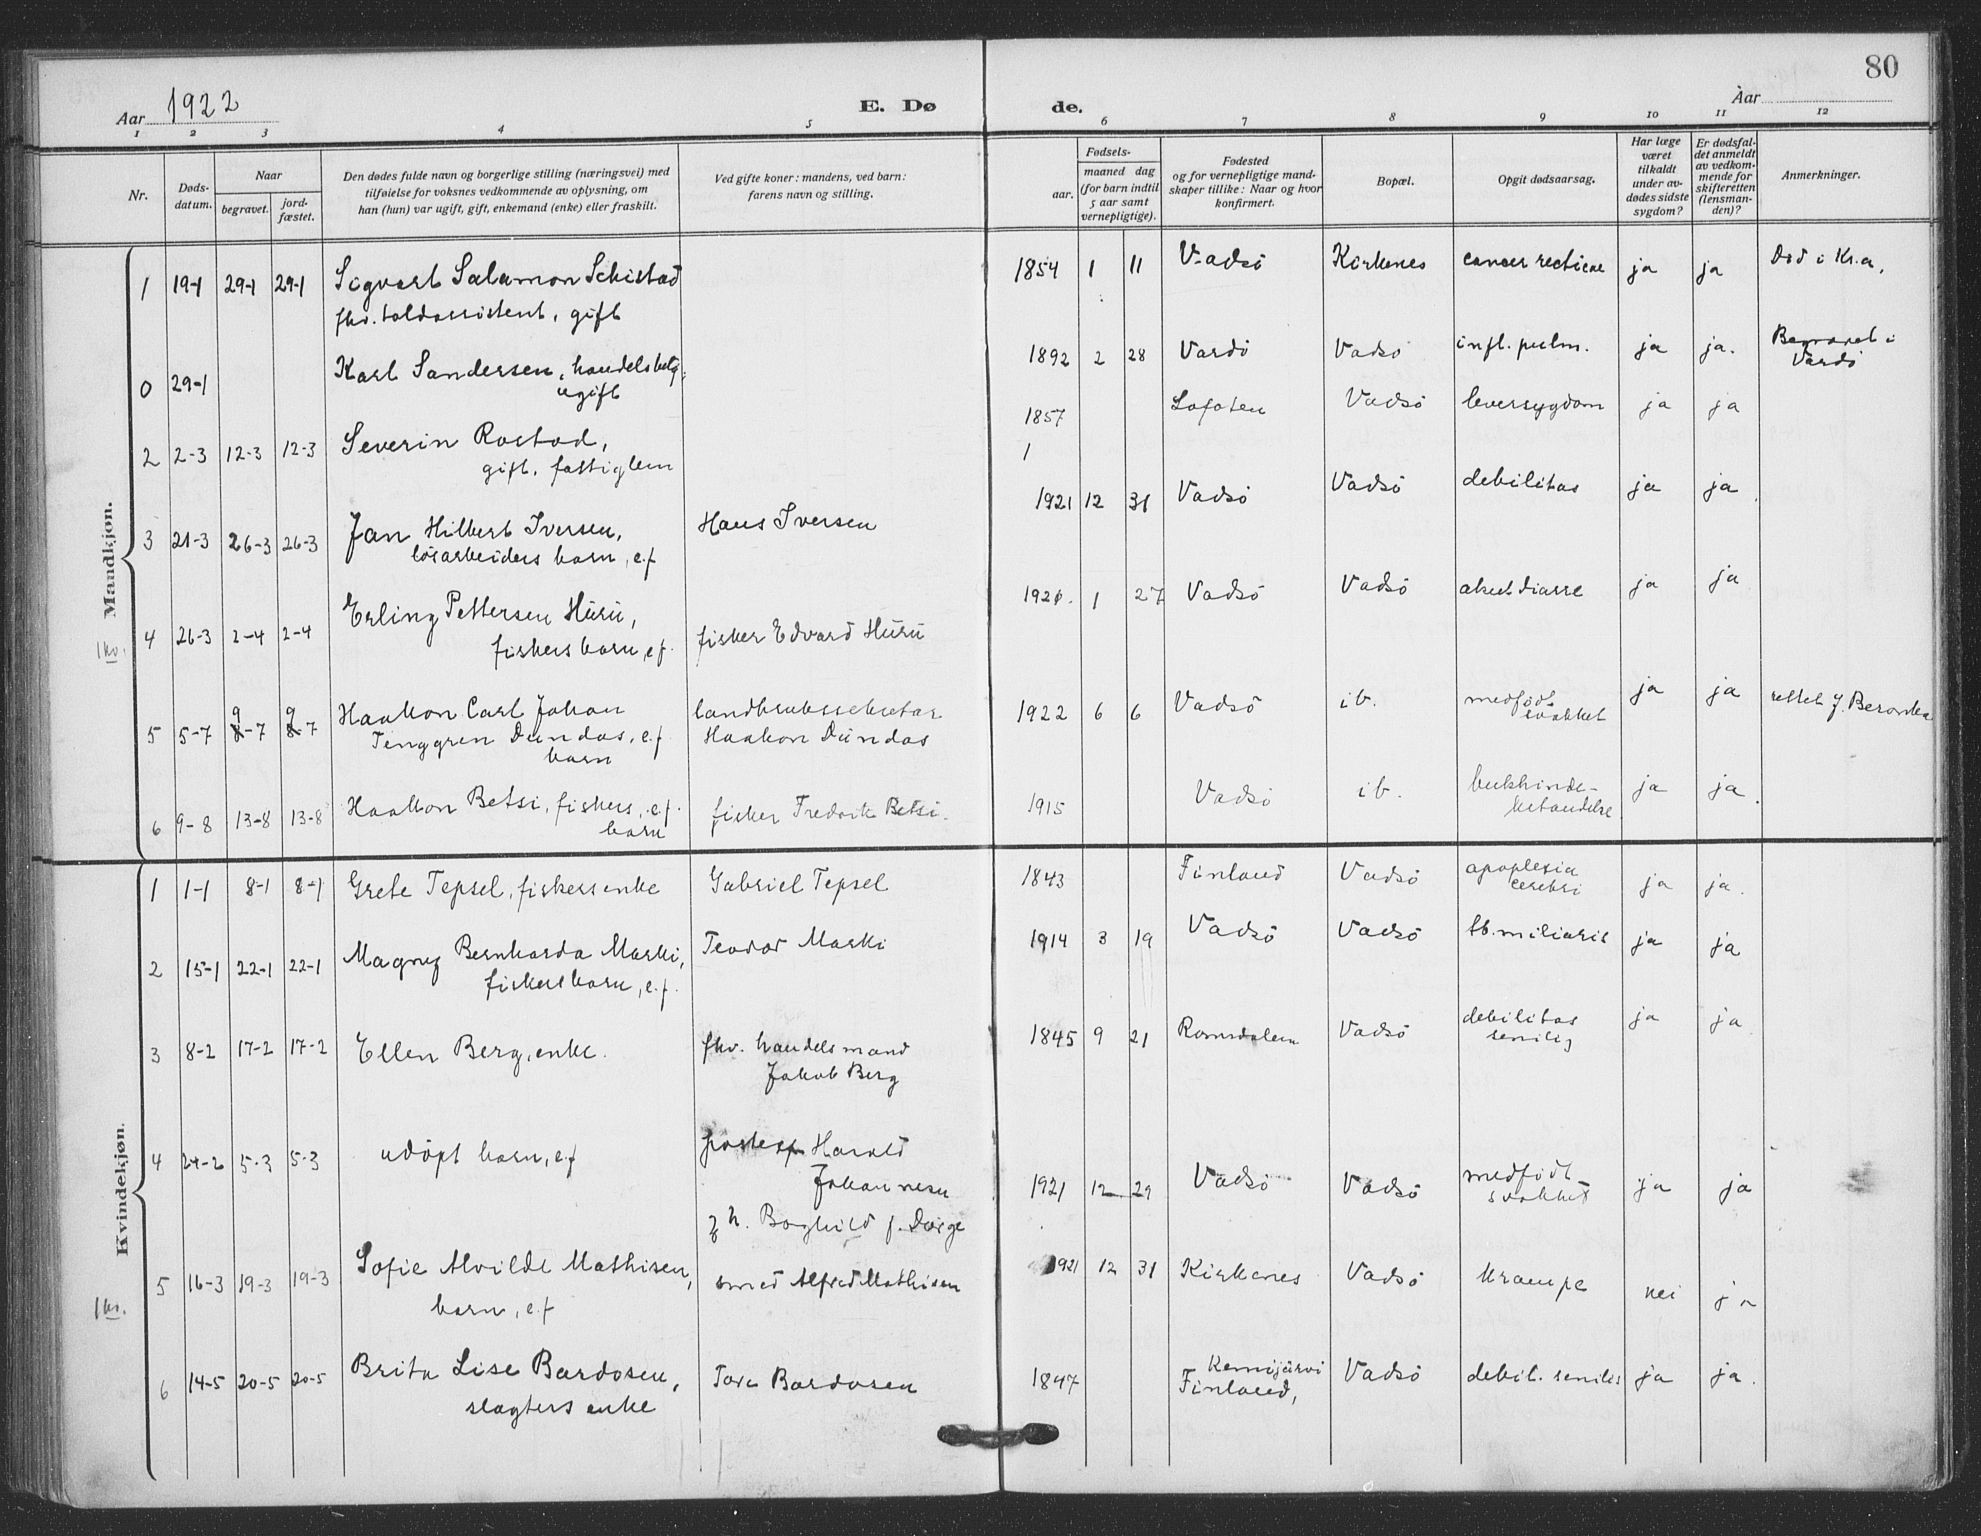 80
Aar 1922
E. Dø
de.
Aar
1 2 3 4 5 6 7 8 9 10 11 12
Nr.
Døds-
datum.
Naar
begravet.
jord-
fæstet.
Den dødes fulde navn og borgerlige stilling (næringsvei) med
tilføielse for voksnes vedkommende av oplysning, om
han (hun) var ugift, gift, enkemand (enke) eller fraskilt.
Ved gifte koner: mandens, ved barn:
farens navn og stilling.
Fødsels-
aar.
maaned dag
(for barn indtil
5 aar samt
vernepligtige).
Fødested
og for vernepligtige mand-
skaper tillike: Naar og hvor
konfirmert.
Bopæl.
Opgit dødsaarsag.
Har læge
været
tilkaldt
under av-
dødes sidste
sygdom?
Er dødsfal-
det anmeldt
av vedkom-
mende for
skifteretten
(lensman-
den)?
Anmerkninger.
Mandkjøn.
1 19-1 29-1 29-1 Sigvart Salamon Schistad 1854 1 11 Vadsö Kirkenes cancer recticae ja ja Död i Kr.a.
fhv. toldassistent, gift
0 29-1 Karl Sandersen, handelsbetj. 1892 2 28 Vardö Vadsö infl. pulm. ja ja. Begravet i
ugift Vardö
2 2-3 12-3 12-3 Severin Rostad, 1857 Lofoten Vadsö leversygdom ja ja
gift, fattiglem
3 21-3 26-3 26-3 Jan Hilbert Iversen, Hans Iversen 1921 12 31 Vadsö Vadsö debilitas ja ja
lösarbeiders barn, e.f
1 kv.
4 26-3 2-4 2-4 Erling Pettersen Huru, fisker Edvard Huru 1921. 1 27 Vadsö Vadsö akut diarre ja ja
fiskers barn, e.f.
5 5-7 9-7 9-7 Haakon Carl Johan landbrukssekretær 1922 6 6 Vadsö ib. medfödt ja ja rettet J. Beronka
Tenggren Dundas, e.f Haakon Dundas svakhet
barn
6 9-8 13-8 13-8 Haakon Betsi, fiskers, e.f. fisker Fredrik Betsi. 1915 Vadsö ib. bukhinde- ja ja.
barn betændelse
Kvindekjøn.
1 1-1 8-1 8-1 Grete Tepsel, fiskersenke Gabriel Tepsel 1843 Finland Vadsö apoplexia ja ja.
cerebri
2 15-1 22-1 22-1 Magny Bernharda Marki, Teodor Marki 1914 3 19 Vadsö Vadsö tb. miliaris ja ja
fiskers barn, e.f.
3 8-2 17-2 17-2 Ellen Berg, enke. fhv. handelsmand 1845 9 21 Romsdalen Vadsö debilitas ja ja
Jakob Berg senilis
4 24-2 5-3 5-3 udöpt barn, e.f Harald 1921 12 29 Vadsö Vadsö medfödt ja ja
Johannesen svakhet
g h. Borghild f. Dørge
5 16-3 19-3 19-3 Sofie Alvilde Mathisen, smed Alfred Mathisen 1921 12 31 Kirkenes Vadsö krampe nei ja
barn, e.f
1 kv.
6 14-5 20-5 20-5 Brita Lise Bardosen, Tore Bardosen 1847 Kemijärvi Vadsö debil. senilis ja ja.
slagters enke Finland,